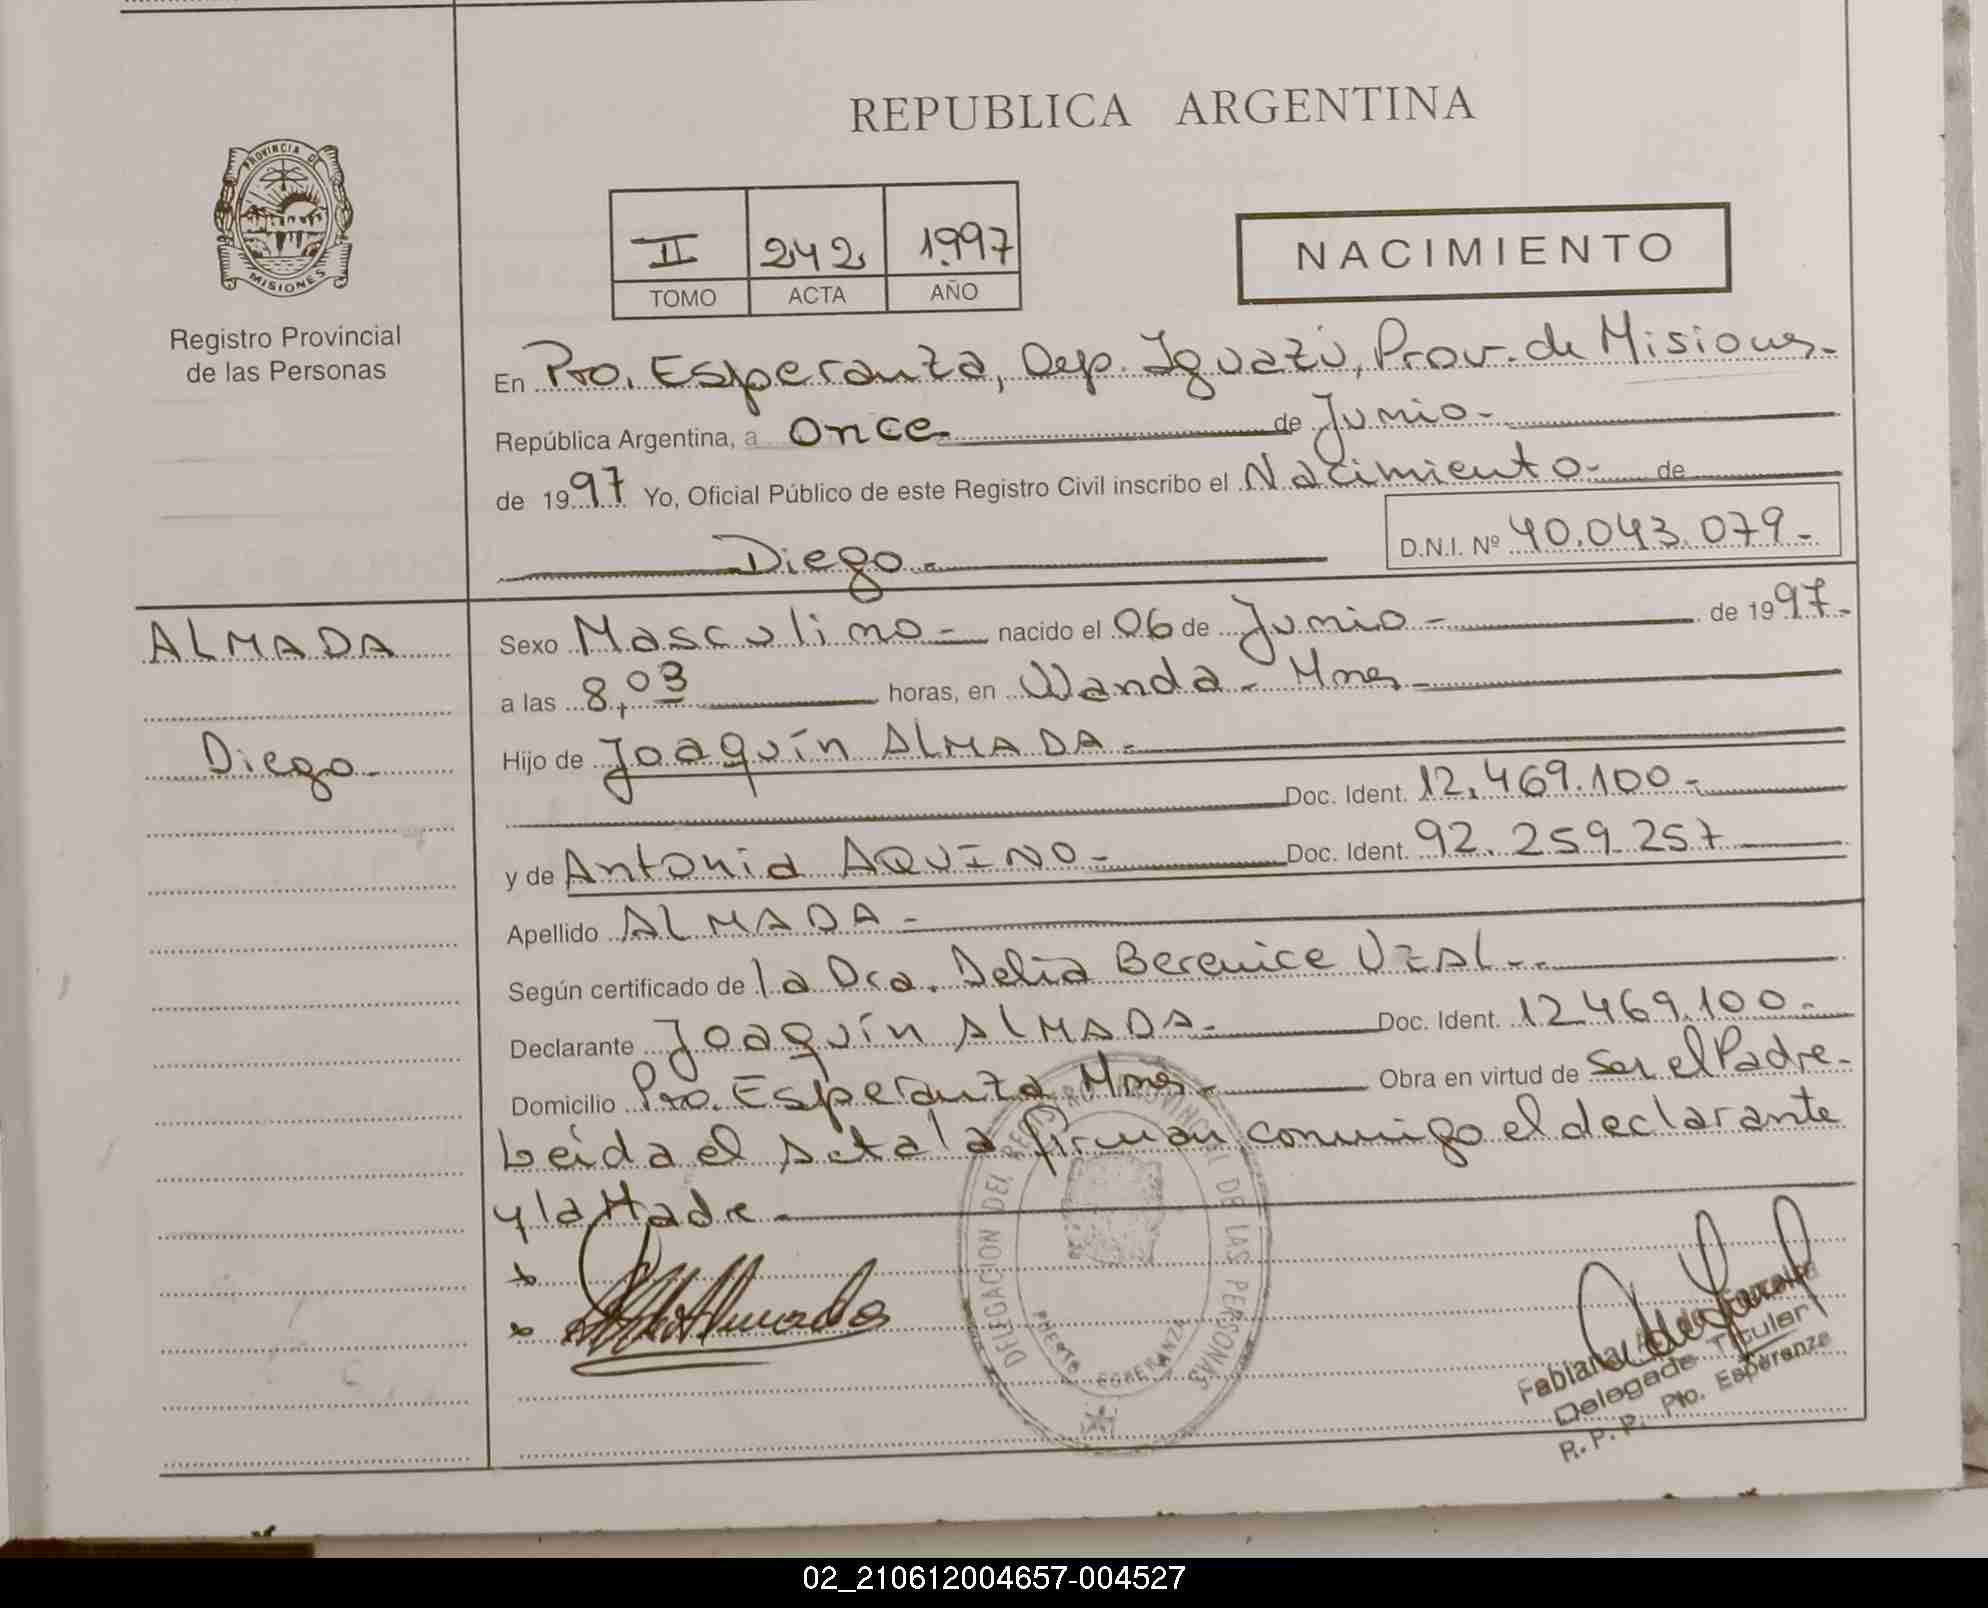 REPUBLICA ARGENTINA
PROVINCIA DE
MISIONES
Registro Provincial
de las Personas
II 242 1997
TOMO ACTA AÑO
NACIMIENTO
En Pto. Esperanza, Dep. Iguazú, Prov. de Misiones.-
República Argentina, a once- de Junio-
de 1997 Yo, Oficial Público de este Registro Civil inscribo el Nacimiento- de
Diego.-
D.N.I. Nº 40.043.079-
ALMADA
Diego-
Sexo Masculino- nacido el 06 de Junio- de 1997.-
a las 8,03 horas, en Wanda- Mnes-
Hijo de Joaquín ALMADA-
Doc. Ident. 12.469.100-
y de Antonia AQUINO- Doc. Ident. 92.259.257
Apellido ALMADA-
Según certificado de la Dra. Delia Berenice VIAL-
Declarante Joaquín ALMADA- Doc. Ident. 12469.100-
Domicilio Pto. Esperanza Mnes- Obra en virtud de Ser el Padre-
Leída el Acta la firman conmigo el declarante
y la Madre-
Almada
DELEGACION DEL REGISTRO PROVINCIAL DE LAS PERSONAS
PUERTO ESPERANZA
Fabiana
Delegada Titular
R.P.P. Pto. Esperanza
02_210612004657-004527